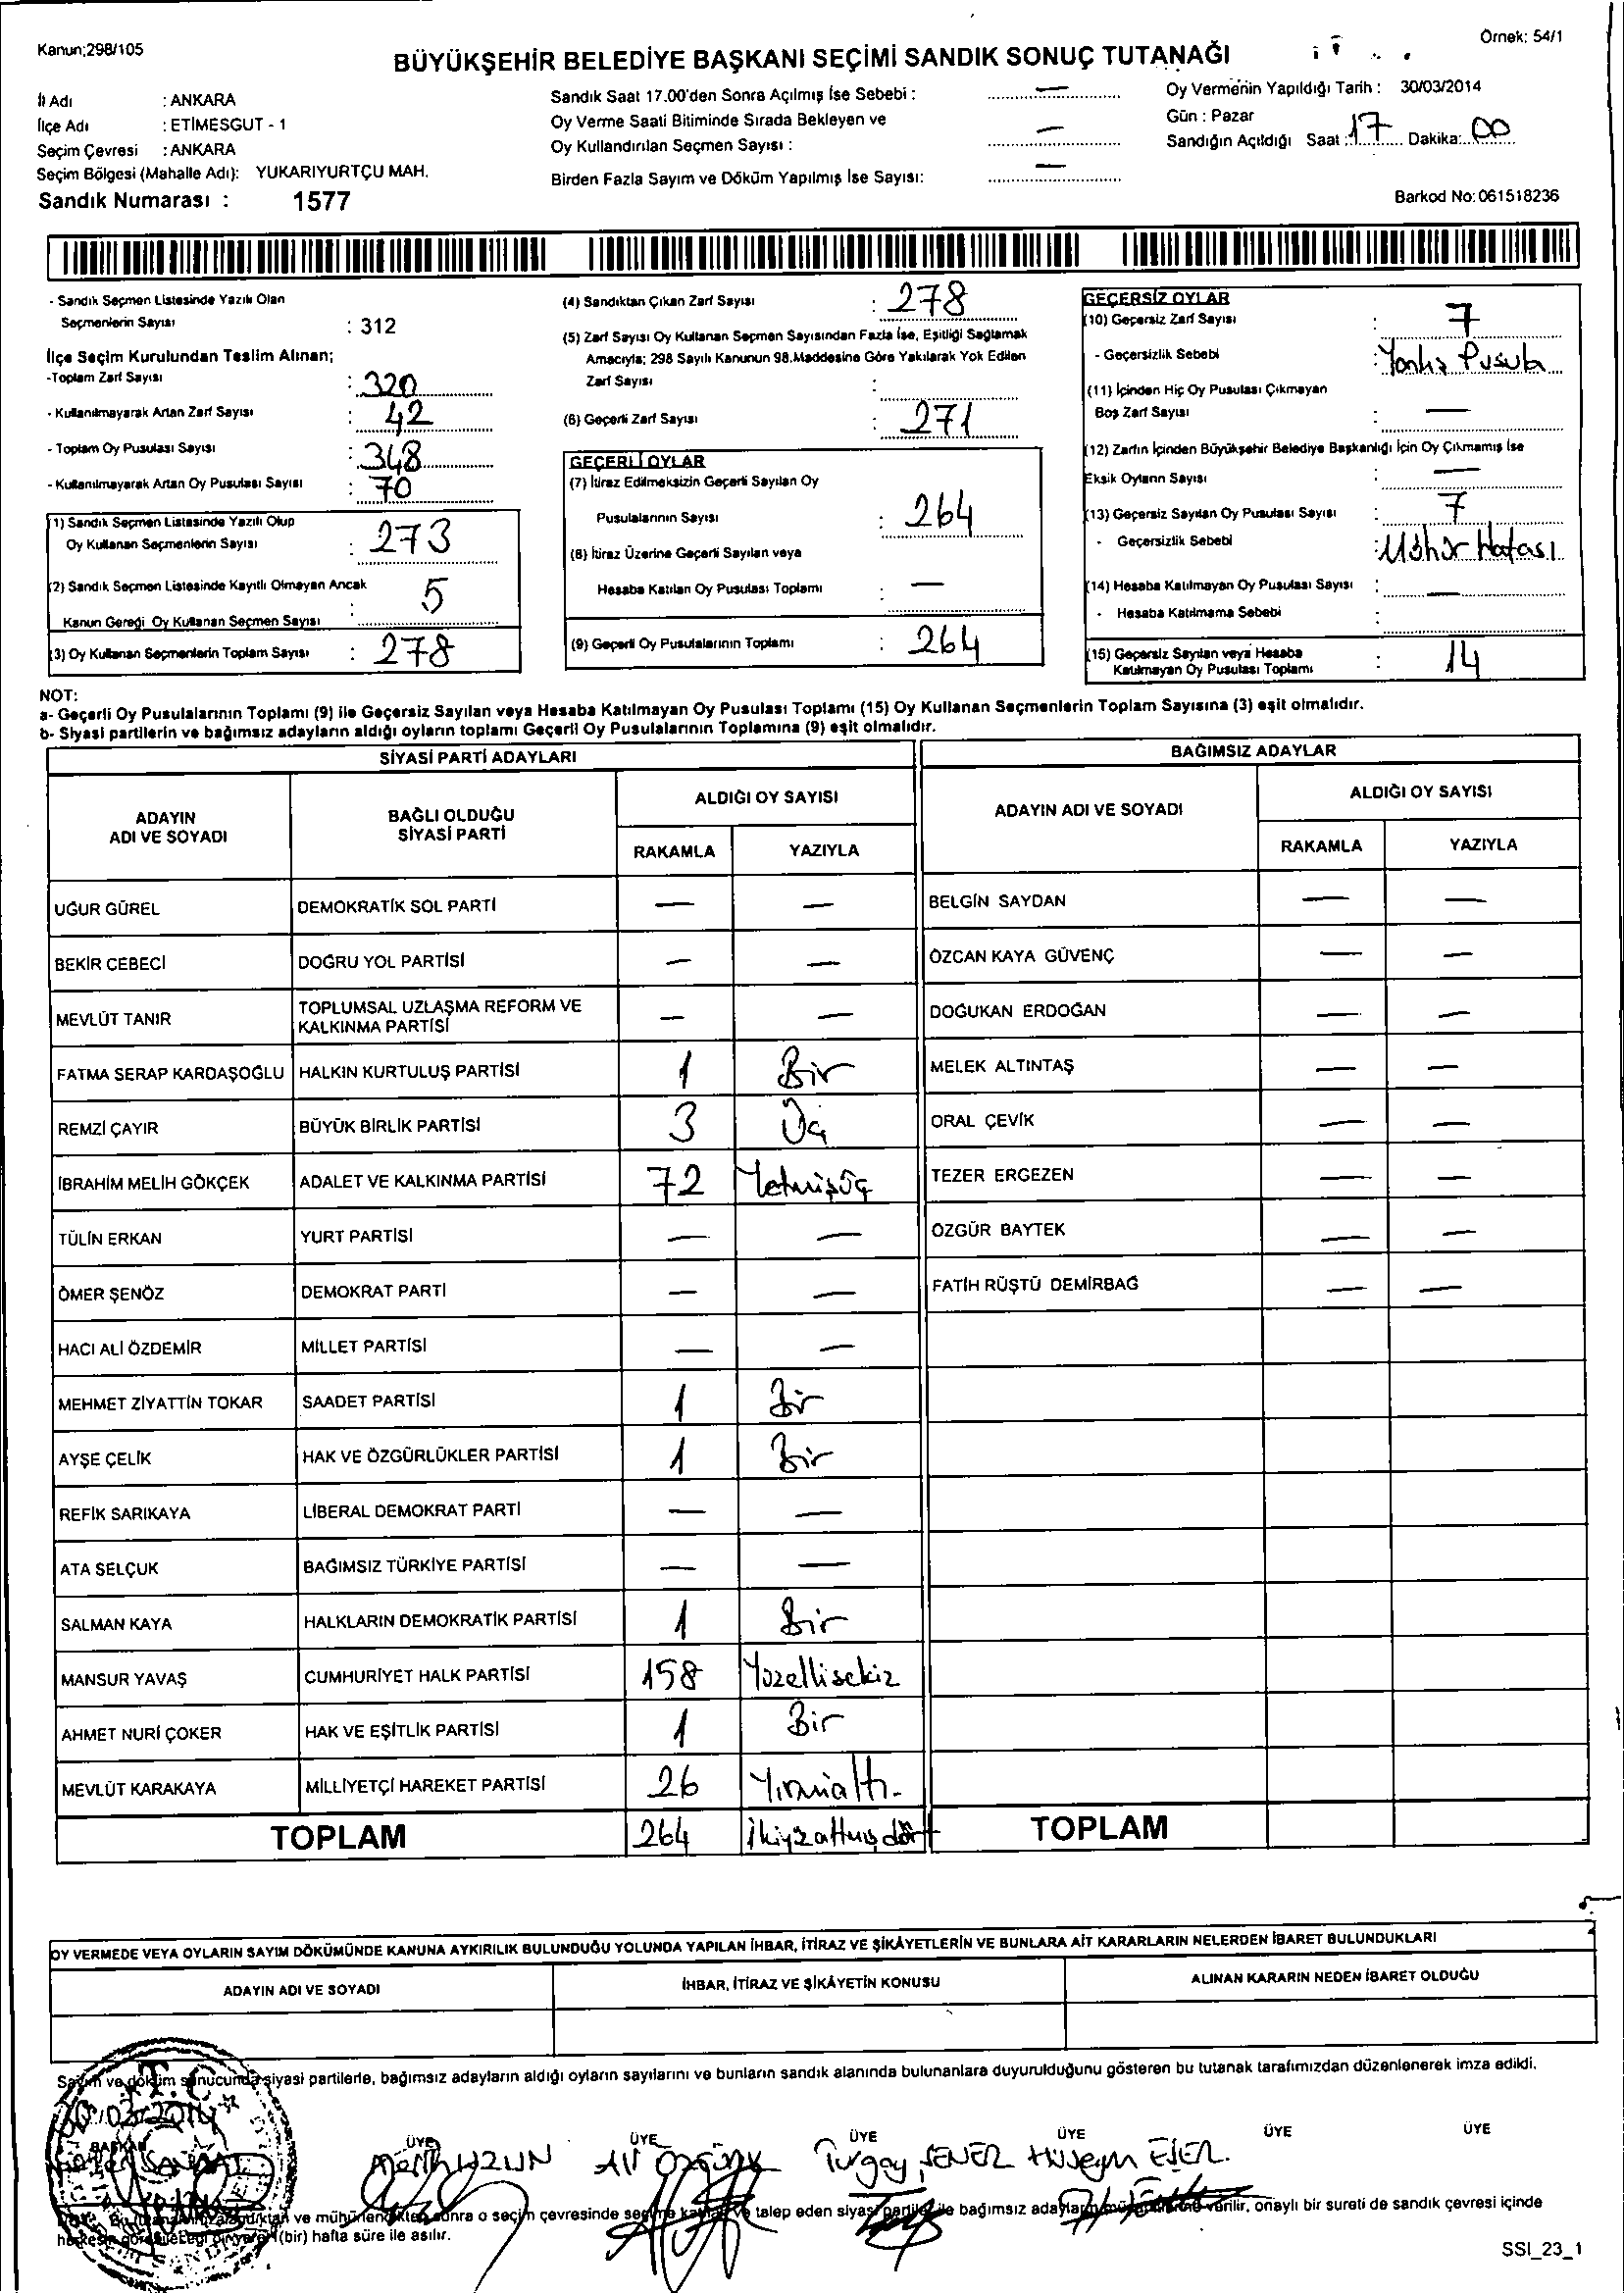 Kanun;298/105
Örnek: 54/1
BÜYÜKŞEHİR BELEDİYE BAŞKANI SEÇİMİ SANDIK SONUÇ TUTANAĞI
İl Adı : ANKARA
İlçe Adı : ETİMESGUT - 1
Seçim Çevresi : ANKARA
Seçim Bölgesi (Mahalle Adı): YUKARIYURTÇU MAH.
Sandık Numarası : 1577
Sandık Saat 17.00'den Sonra Açılmış İse Sebebi : —
Oy Verme Saati Bitiminde Sırada Bekleyen ve
Oy Kullandırılan Seçmen Sayısı : —
Birden Fazla Sayım ve Döküm Yapılmış İse Sayısı: —
Oy Vermenin Yapıldığı Tarih : 30/03/2014
Gün : Pazar
Sandığın Açıldığı Saat : 17 Dakika: 00
Barkod No: 061518236
- Sandık Seçmen Listesinde Yazılı Olan
Seçmenlerin Sayısı : 312
İlçe Seçim Kurulundan Teslim Alınan;
-Toplam Zarf Sayısı : 320
- Kullanılmayarak Artan Zarf Sayısı : 42
- Toplam Oy Pusulası Sayısı : 348
- Kullanılmayarak Artan Oy Pusulası Sayısı : 70
(1) Sandık Seçmen Listesinde Yazılı Olup
Oy Kullanan Seçmenlerin Sayısı : 273
(2) Sandık Seçmen Listesinde Kayıtlı Olmayan Ancak
Kanun Gereği Oy Kullanan Seçmen Sayısı : 5
(3) Oy Kullanan Seçmenlerin Toplam Sayısı : 278
(4) Sandıktan Çıkan Zarf Sayısı : 278
(5) Zarf Sayısı Oy Kullanan Seçmen Sayısından Fazla İse, Eşitliği Sağlamak
Amacıyla; 298 Sayılı Kanunun 98.Maddesine Göre Yakılarak Yok Edilen
Zarf Sayısı :
(6) Geçerli Zarf Sayısı : 271
GEÇERLİ OYLAR
(7) İtiraz Edilmeksizin Geçerli Sayılan Oy
Pusulalarının Sayısı : 264
(8) İtiraz Üzerine Geçerli Sayılan veya
Hesaba Katılan Oy Pusulası Toplamı : —
(9) Geçerli Oy Pusulalarının Toplamı : 264
GEÇERSİZ OYLAR
(10) Geçersiz Zarf Sayısı : 7
- Geçersizlik Sebebi : Yanlış Pusula
(11) İçinden Hiç Oy Pusulası Çıkmayan
Boş Zarf Sayısı : —
(12) Zarfın İçinden Büyükşehir Belediye Başkanlığı İçin Oy Çıkmamış İse
Eksik Oyların Sayısı : —
(13) Geçersiz Sayılan Oy Pusulası Sayısı : 7
- Geçersizlik Sebebi : Mühür Hatası
(14) Hesaba Katılmayan Oy Pusulası Sayısı : —
- Hesaba Katılmama Sebebi :
(15) Geçersiz Sayılan veya Hesaba
Katılmayan Oy Pusulası Toplamı : 14
NOT:
a- Geçerli Oy Pusulalarının Toplamı (9) ile Geçersiz Sayılan veya Hesaba Katılmayan Oy Pusulası Toplamı (15) Oy Kullanan Seçmenlerin Toplam Sayısına (3) eşit olmalıdır.
b- Siyasi partilerin ve bağımsız adayların aldığı oyların toplamı Geçerli Oy Pusulalarının Toplamına (9) eşit olmalıdır.
SİYASİ PARTİ ADAYLARI
ADAYIN ADI VE SOYADI BAĞLI OLDUĞU SİYASİ PARTİ ALDIĞI OY SAYISI
RAKAMLA YAZIYLA
UĞUR GÜREL DEMOKRATİK SOL PARTİ — —
BEKİR CEBECİ DOĞRU YOL PARTİSİ — —
MEVLÜT TANIR TOPLUMSAL UZLAŞMA REFORM VE KALKINMA PARTİSİ — —
FATMA SERAP KARDAŞOĞLU HALKIN KURTULUŞ PARTİSİ 1 Bir
REMZİ ÇAYIR BÜYÜK BİRLİK PARTİSİ 3 Üç
İBRAHİM MELİH GÖKÇEK ADALET VE KALKINMA PARTİSİ 72 Yetmişüç
TÜLİN ERKAN YURT PARTİSİ — —
ÖMER ŞENÖZ DEMOKRAT PARTİ — —
HACI ALİ ÖZDEMİR MİLLET PARTİSİ — —
MEHMET ZİYATTİN TOKAR SAADET PARTİSİ 1 Bir
AYŞE ÇELİK HAK VE ÖZGÜRLÜKLER PARTİSİ 1 Bir
REFİK SARIKAYA LİBERAL DEMOKRAT PARTİ — —
ATA SELÇUK BAĞIMSIZ TÜRKİYE PARTİSİ — —
SALMAN KAYA HALKLARIN DEMOKRATİK PARTİSİ 1 Bir
MANSUR YAVAŞ CUMHURİYET HALK PARTİSİ 158 Yüzellisekiz
AHMET NURİ ÇOKER HAK VE EŞİTLİK PARTİSİ 1 Bir
MEVLÜT KARAKAYA MİLLİYETÇİ HAREKET PARTİSİ 26 Yirmialtı.
TOPLAM 264 İkiyüzaltmışdört
BAĞIMSIZ ADAYLAR
ADAYIN ADI VE SOYADI ALDIĞI OY SAYISI
RAKAMLA YAZIYLA
BELGİN SAYDAN — —
ÖZCAN KAYA GÜVENÇ — —
DOĞUKAN ERDOĞAN — —
MELEK ALTINTAŞ — —
ORAL ÇEVİK — —
TEZER ERGEZEN — —
ÖZGÜR BAYTEK — —
FATİH RÜŞTÜ DEMİRBAĞ — —
TOPLAM
OY VERMEDE VEYA OYLARIN SAYIM DÖKÜMÜNDE KANUNA AYKIRILIK BULUNDUĞU YOLUNDA YAPILAN İHBAR, İTİRAZ VE ŞİKÂYETLERİN VE BUNLARA AİT KARARLARIN NELERDEN İBARET BULUNDUKLARI
ADAYIN ADI VE SOYADI İHBAR, İTİRAZ VE ŞİKÂYETİN KONUSU ALINAN KARARIN NEDEN İBARET OLDUĞU
Sayım ve döküm sonucunda siyasi partilerle, bağımsız adayların aldığı oyların sayılarını ve bunların sandık alanında bulunanlara duyurulduğunu gösteren bu tutanak tarafımızdan düzenlenerek imza edildi.
T.C
30.03.2014
BAŞKAN ÜYE ÜYE ÜYE ÜYE ÜYE ÜYE
UZUN Ali Turgay ŞENER Hüseyin
ve mühürlendikten sonra o seçim çevresinde talep eden siyasi bağımsız verilir, onaylı bir sureti de sandık çevresi içinde
(bir) hafta süre ile asılır.
SSI_23_1